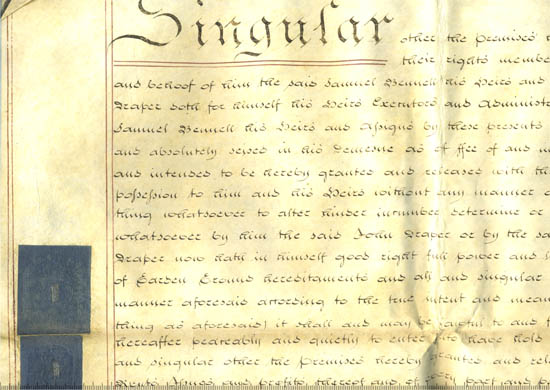 Singular other the Premises
their rights membe
and behoof of him the said Samuel Bennell his Heirs and
Draper doth for himself his Heirs Executors and Administ
Samuel Bennell his Heirs and Assigns by these presents
and absolutely seized in his demesne as of ffee of and in
and intended to be hereby granted and released with th
possession to him and his Heirs without any manner o
thing whatsoever to alter hinder incumber determine or
whatsoever by him the said John Draper or by the sa
Draper now hath in himself good right full power and
of Garden Ground hereditaments and all and singular
manner aforesaid according to the true intent and mean
thing as aforesaid) it shall and may be lawful to and f
hereafter peaceably and quietly to enter into have hold
and singular other the Premises hereby granted and rel
Rents Issues and profits thereof and of every part and